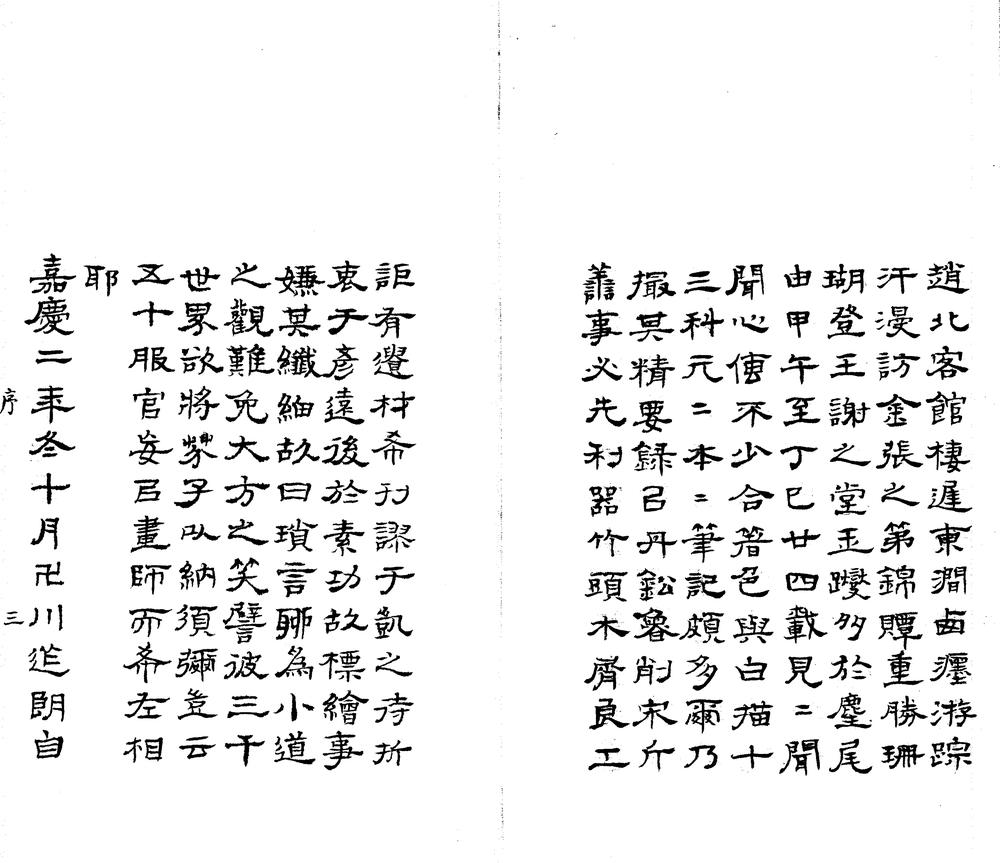 趙北客館棲遲東澗西瀍游踪
汗漫訪金張之第錦贉重勝珊
瑚登王謝之堂玉躞多於麈尾
由甲午至丁巳廿四載見二聞
聞心傳不少合著色與白描十
三科元二本二筆記頗多爾乃
撮其精要錄㠯丹鉛魯削宋斤
譱事必先利器竹頭木屑良工
詎有遺材希刊謬于凱之待折
衷于彥遠後於素功故標繪事
嫌其纖細故曰瑣言聊為小道
之觀難免大方之笑譬彼三千
世界欲將芥子以納須彌豈云
五十服官妄㠯畫師而希左相
耶
嘉慶二年冬十月卍川迮朗自
序 三